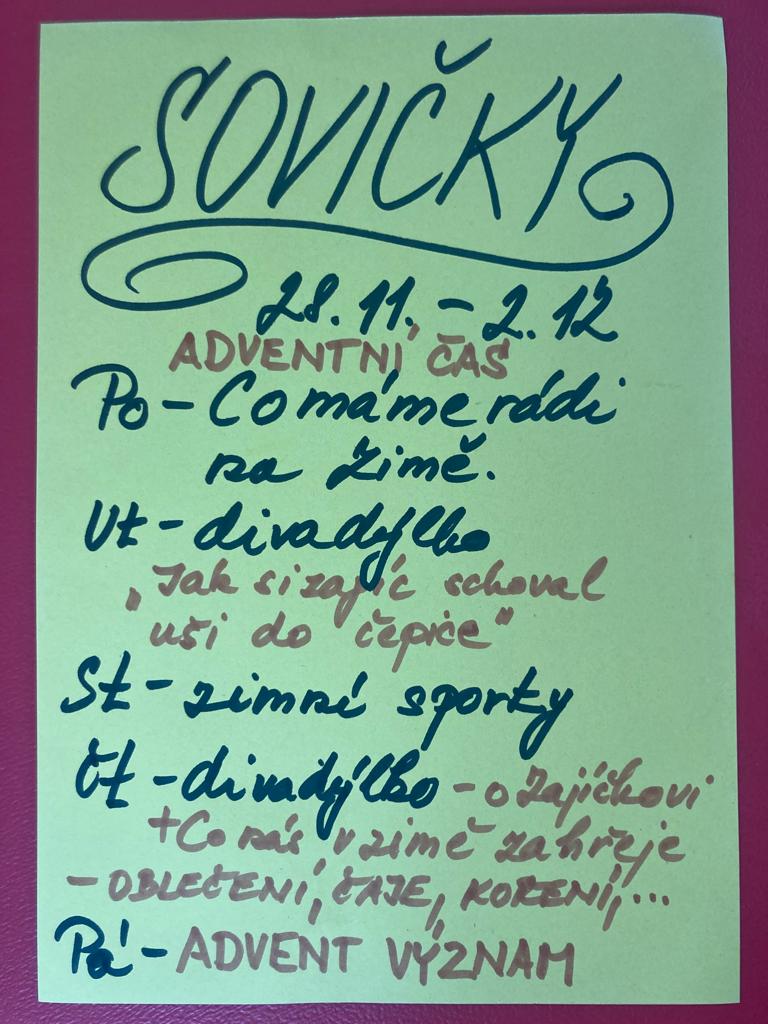 SOVIČKY
28.11. – 2.12
ADVENTNÍ ČAS
Po – Co máme rádi
na zimě.
Út – divadýlko
„Jak si zajíc schoval
uši do čepice"
St – zimní sporty
Čt – divadýlko – o zajíčkovi
+ Co nás v zimě zahřeje
– OBLEČENÍ, ČAJE, KOŘENÍ,...
Pá – ADVENT VÝZNAM